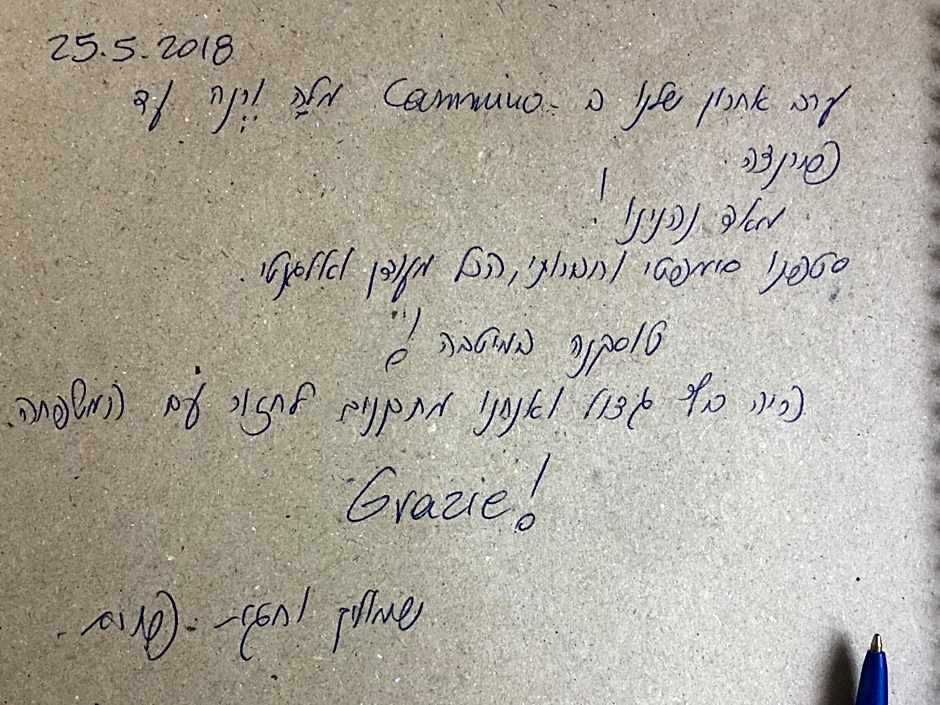 25.5.2018
ערב אחרון שלנו ב - Cammino מלה ורנה עד
פירנצה.
מאד נהנינו!
סטפנו סימפטי וחברותי, הכל מעודן ואלגנטי.
טוסקנה במיטבה!
היה כיף גדול ואנחנו מתכננים לחזור עם המשפחה.
Grazie!
שמוליק וחגית